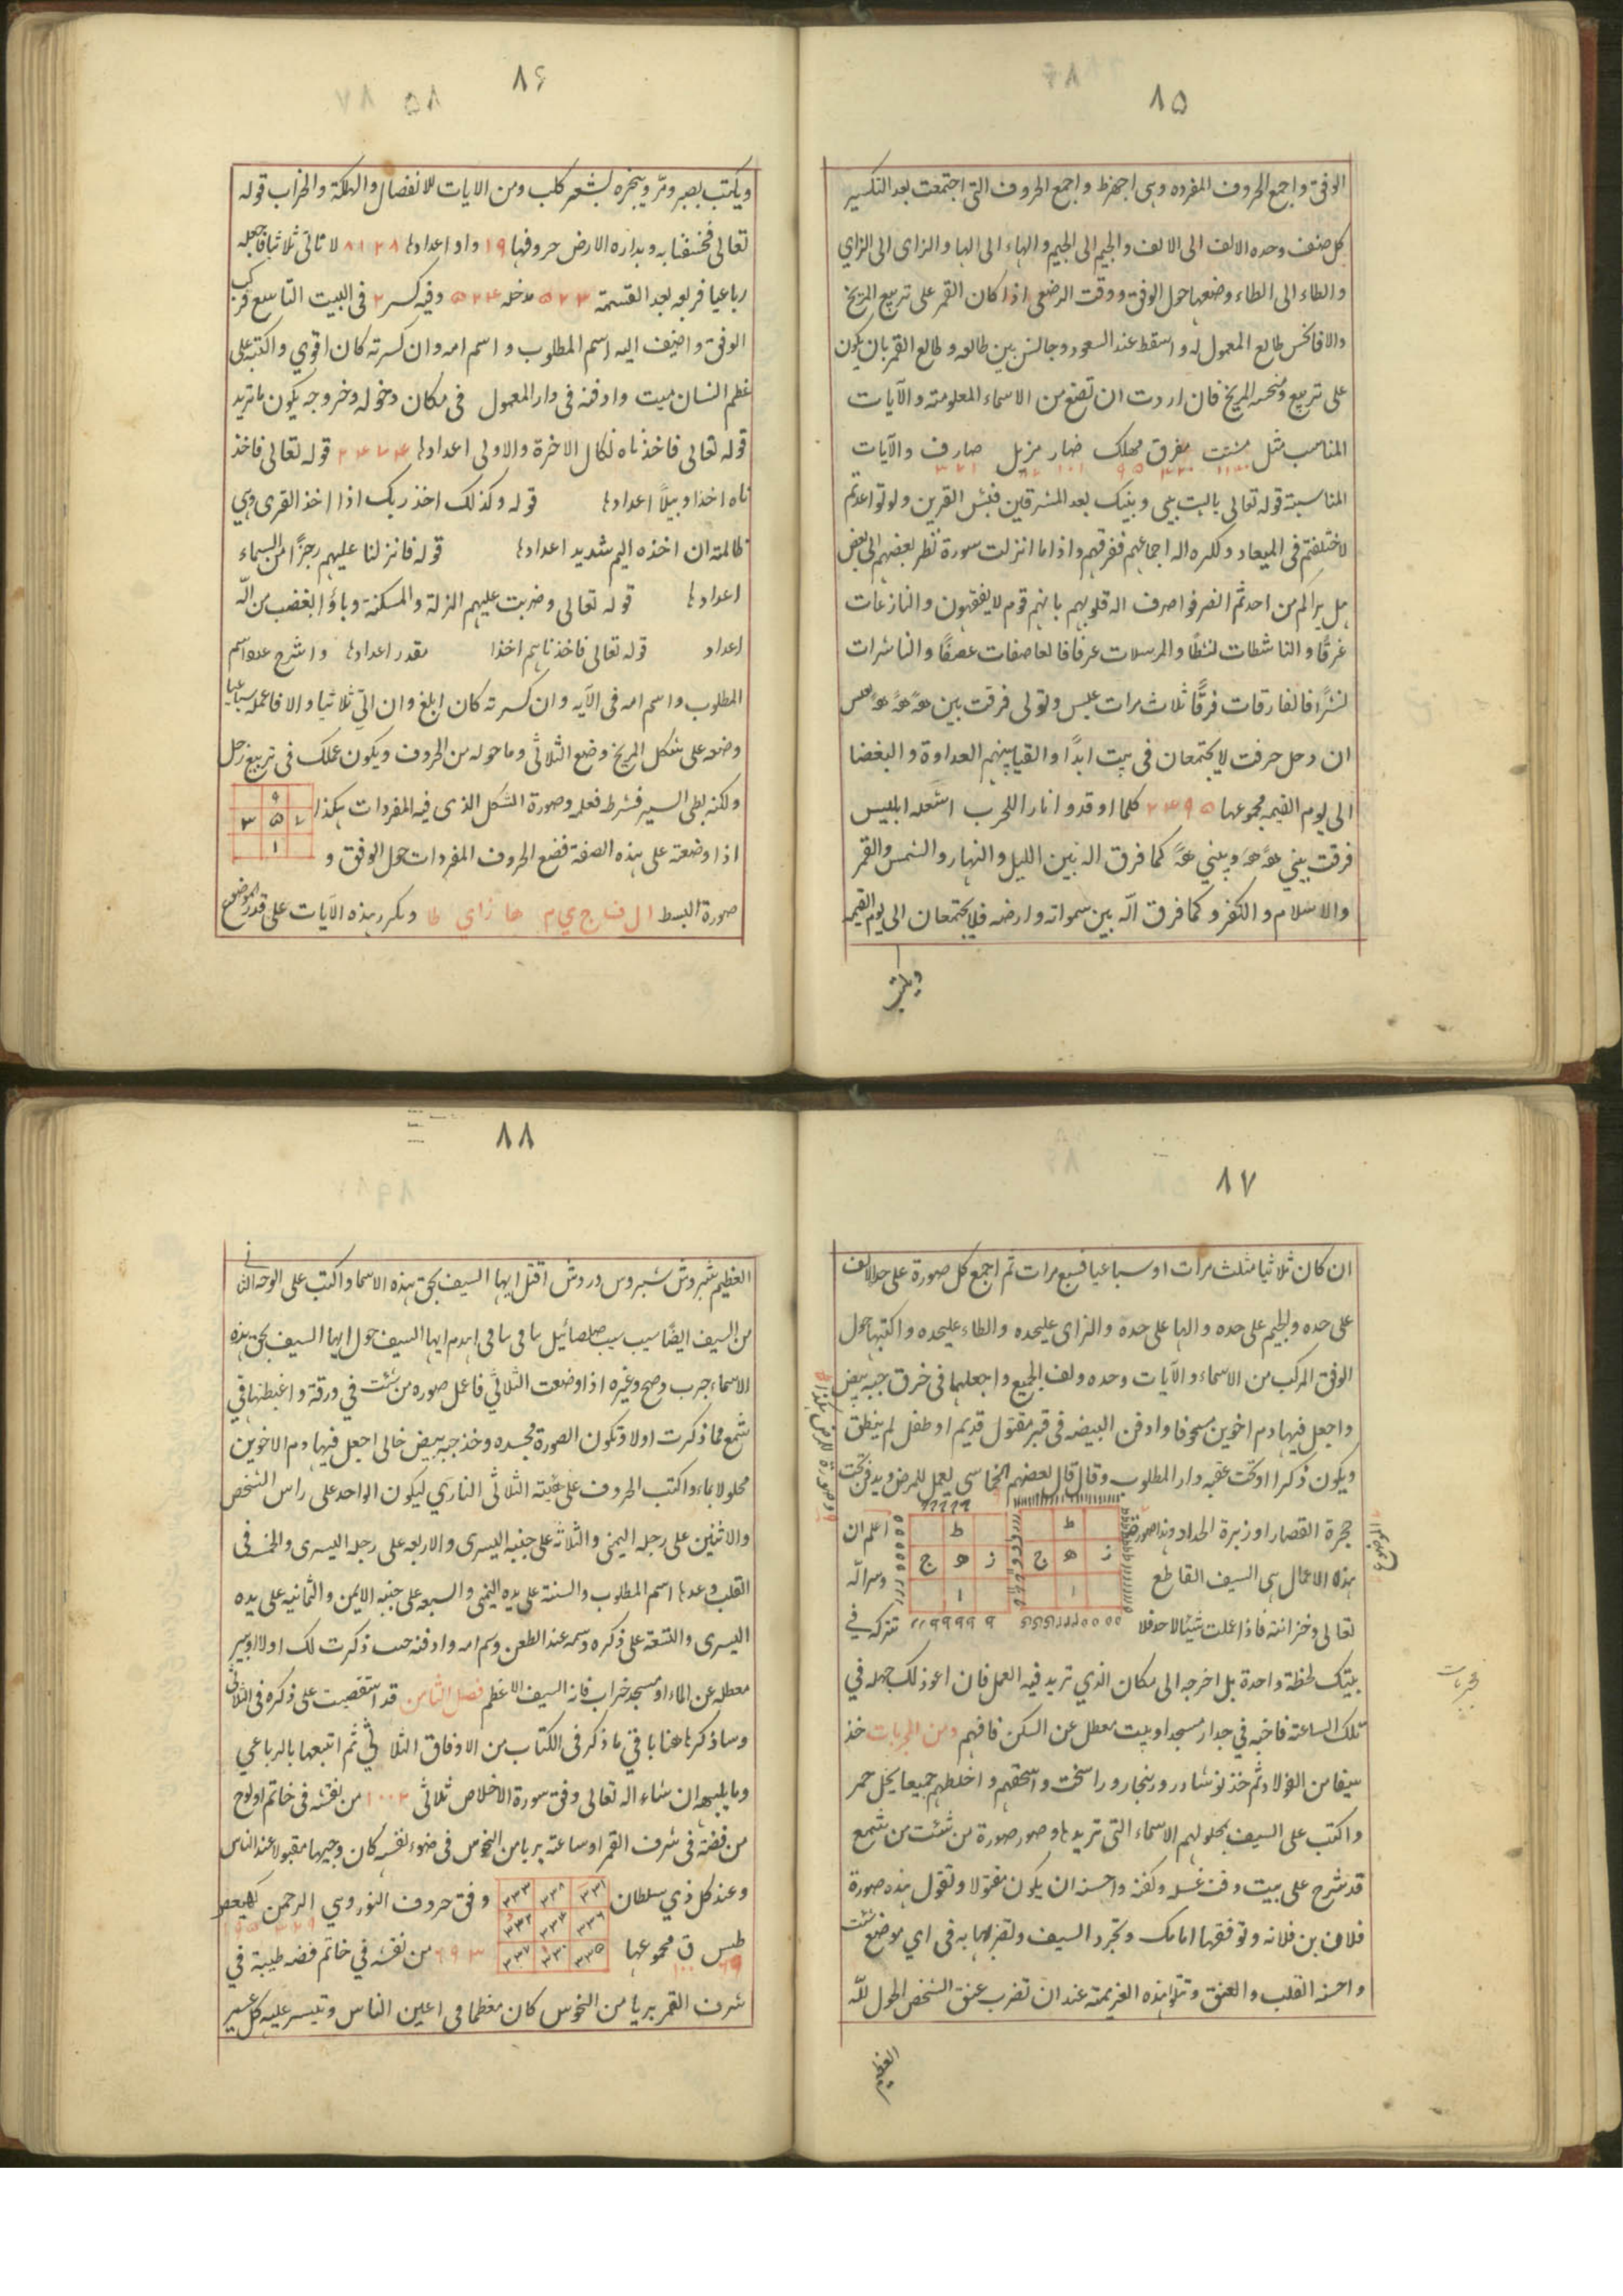 ٨۵
الوفق واجمع الحروف المفرده وهى اجهزط واجمع الحروف التى اجتمعت بعد التكسير
كل صنف وحده الالف الى الالف والجيم الى الجيم والهاء الى الها والزاى الى الزاي
والطاء الى الطاء وضعها حول الوفق ووقت الرضعى اذا كان القمر على تربيع المريخ
والا فانحس طالع المعمول له واسقط عند السعود وجالس بين طالعه وطالع القمر بان يكون
على تربيع ونحسه المريخ فان اردت ان تضع من الاسماء المعلومته والآيات
المناسب مثل مشتت مفرق مهلك ضار مزيل صارف والآيات
المناسبة قوله تعالى ياليت بينى وبينك بعد المشرقين فبئس القرين ولو تواعدتم
لاختلفتم فى الميعاد وكره اله اجماعهم ففرقهم واذا ما انزلت سورة نظر بعضهم الى بعض
هل يراكم من احد ثم انصرفوا صرف اله قلوبهم بانهم قوم لا يفقهون والنازعات
غرقًا والناشطات نشطًا والمرسلات عرفا فالعاصفات عصفًا والناشرات
نشرًا فالفارقات فرقًا ثلاث مرات عبس وتولى فرقت بين
ان دخل حرفت لا يجتمعان فى بيت ابدًا والقيا بينهم العداوة والبغضا
الى يوم القيمه مجموعها ٢٣٩۵ كلما اوقدوا نارا للحرب اشعله ابليس
فرقت بيني وبيني كما فرق اله بين الليل والنهار والشمس والقمر
والاسلام والكفر وكما فرق الله بين سمواته وارضه فلا يجتمعان الى يوم القيمه
ويكتب
٨۶
ويكتب بصبر ومرّ ويبخره بشعر كلب ومن الايات للانفصال والهلكة والخراب قوله
تعالى فخسفنا به وبداره الارض حروفها ١٩ واو اعدادها ٨١٢٨ لا تالى ثلاثيا فاجعله
رباعيا فربعه بعد القسمة ۵٢٣ مدخله ۵٢٤ وفيه كسر ٢ فى البيت التاسع فركب
الوفق واضف اليه اسم المطلوب واسم امه وان كسرته كان اقوي واكتبه على
عظم انسان ميت وادفنه فى دار المعمول فى مكان دخوله وخروجه يكون ما تريد
قوله تعالى فاخذناه نكال الاخرة والاولى اعدادها قوله تعالى فاخذ
ناه اخذا وبيلًا اعدادها قوله وكذلك اخذ ربك اذا اخذ القرى وهي
ظالمة ان اخذه اليم شديد اعدادها قوله فانزلنا عليهم رجزًا من السماء
اعدادها قوله تعالى وضربت عليهم الزلة والمسكنة وباؤا بغضب من الله
اعداد قوله تعالى فاخذناهم اخذا مقدر اعدادها واشرح عدد اسم
المطلوب واسم امه فى الآيه وان كسرته كان ابلغ وان اتى ثلاثيا والا فاعمله سباعيا
وضعه على شكل المريخ وضع الثلاثي وما حوله من الحروف ويكون عملك فى تربيع زحل
ولكنه بطى السير فشرط فعله وصورة الشكل الذى فيه المفردات هكذا
٩
٧ ۵ ٣
١
اذا وضعته على هذه الصفة فضع الحروف المفردات حول الوفق و
صورة البسط ال ف ج ي م ها زاي طا وكرر هذه الآيات على قدر الموضع
٨٧
ان كان ثلاثيا مثلث مرات او سباعيا فسبع مرات ثم اجمع كل صورة على حد الالف
على حده ولجيم على حده والها على حده والزاى عليحده والطاء عليحده واكتبها حول
الوفق المركب من الاسماء والآيات وحده ولف الجميع واجعلها فى خرق جبه بيض
واجعل فيها دم اخوين مسحوفا وادفن البيضه فى قبر مقتول قديم او طفل لم ينطق
ويكون ذكرا او تحت عتبه دار المطلوب وقال قال بعضهم الخماسى يعمل للمرض ويدفن تحت
حجرة القصار او زبرة الحداد وهذا صورته اعلم ان
ط ط
ز ه ج ز ه ج
١ ١
هذه الاعمال هى السيف القاطع وسر الله
تعالى وخزانته فاذا عملت شيئا لاحد فلا تتركه في
بيتك لحظة واحدة بل اخرجه الى مكان الذي تريد فيه العمل فان اعوذ لك جهله في
تلك الساعة فاخبه في جدار مسجد او بيت معطل عن السكن فافهم ومن المجربات خذ
سيفا من الفولاد ثم خذ نوشادر وزنجار وراسخت واسحقهم واخلطهم جميعا بخل خمر
واكتب على السيف بمحلولهم الاسماء التى تريدها وصور صورة من شئت من شمع
قد شرح على بيت وقت غسله وكفنه واحسنه ان يكون مقتولا وتقول هذه صورة
فلان بن فلانه وتوقفها امامك وتجرد السيف وتضربها به فى اي موضع شئت
واحسنه القلب والعنق وتتلو هذه العزيمته عند ان تضرب عنق الشخص الحول لله
مجربات
العظيم
٨٨
العظيم شبروش شبروس دروش اقتل ايها السيف بحق هذه الاسما واكتب على الوجه الثانى
من السيف ايضًا سيب سيب صلصائيل سافى سافى اهدم ايها السيف حول ايها السيف بحق هذه
الاسماء جرب وصح وغيره اذا وضعت الثلاثي فاعمل صوره من شئت في ورقة واغبطنها في
شمع مما ذكرت اولا وتكون الصورة مجسده وخذ جبه بيض خالى اجعل فيها دم الاخوين
محلولا بماء واكتب الحروف على هيئته الثلاثى الناري ليكون الواحد على راس الشخص
والاثنين على رجله اليمنى والثلاثه على جنبه اليسرى والاربعه على رجله اليسرى والخمسه فى
القلب وعدها اسم المطلوب والستة على يده اليمنى والسبعه على جنبه الايمن والثمانيه على يده
اليسرى والتسعة على ذكره وسمه عند الطعن وسم امه وادفنه حيث ذكرت لك اولا او ببير
معطله عن الماء او مسجد خراب فانه السيف الاعظم فصل الثامن قد استقصيت على ذكره فى الثلاثي
وساذكر ها هنا باقي ما ذكر فى الكتاب من الاوفاق الثلاثي ثم اتبعها بالرباعي
وما يليه ان شاء اله تعالى وفق سورة الاخلاص ثلاثى ١٠٠٢ من نقشه فى خاتم او لوح
من فضة فى شرف القمر او ساعته بريا من النحوس فى ضوء نفسه كان وجيها مقبولا عند الناس
وعند كل ذي سلطان وفق حروف النور وهي الرحمن كهيعص
٣٣١ ٣٣٨ ٣٣٣
٣٣٦ ٣٣٤ ٣٣٢
٣٣۵ ٣٣٠ ٣٣٧
طس ق مجموعها ٦٩٣ من نقشه في خاتم فضه طيبة في
شرف القمر بريا من النحوس كان معظما فى اعين الناس وتيسر عليه كل عسير